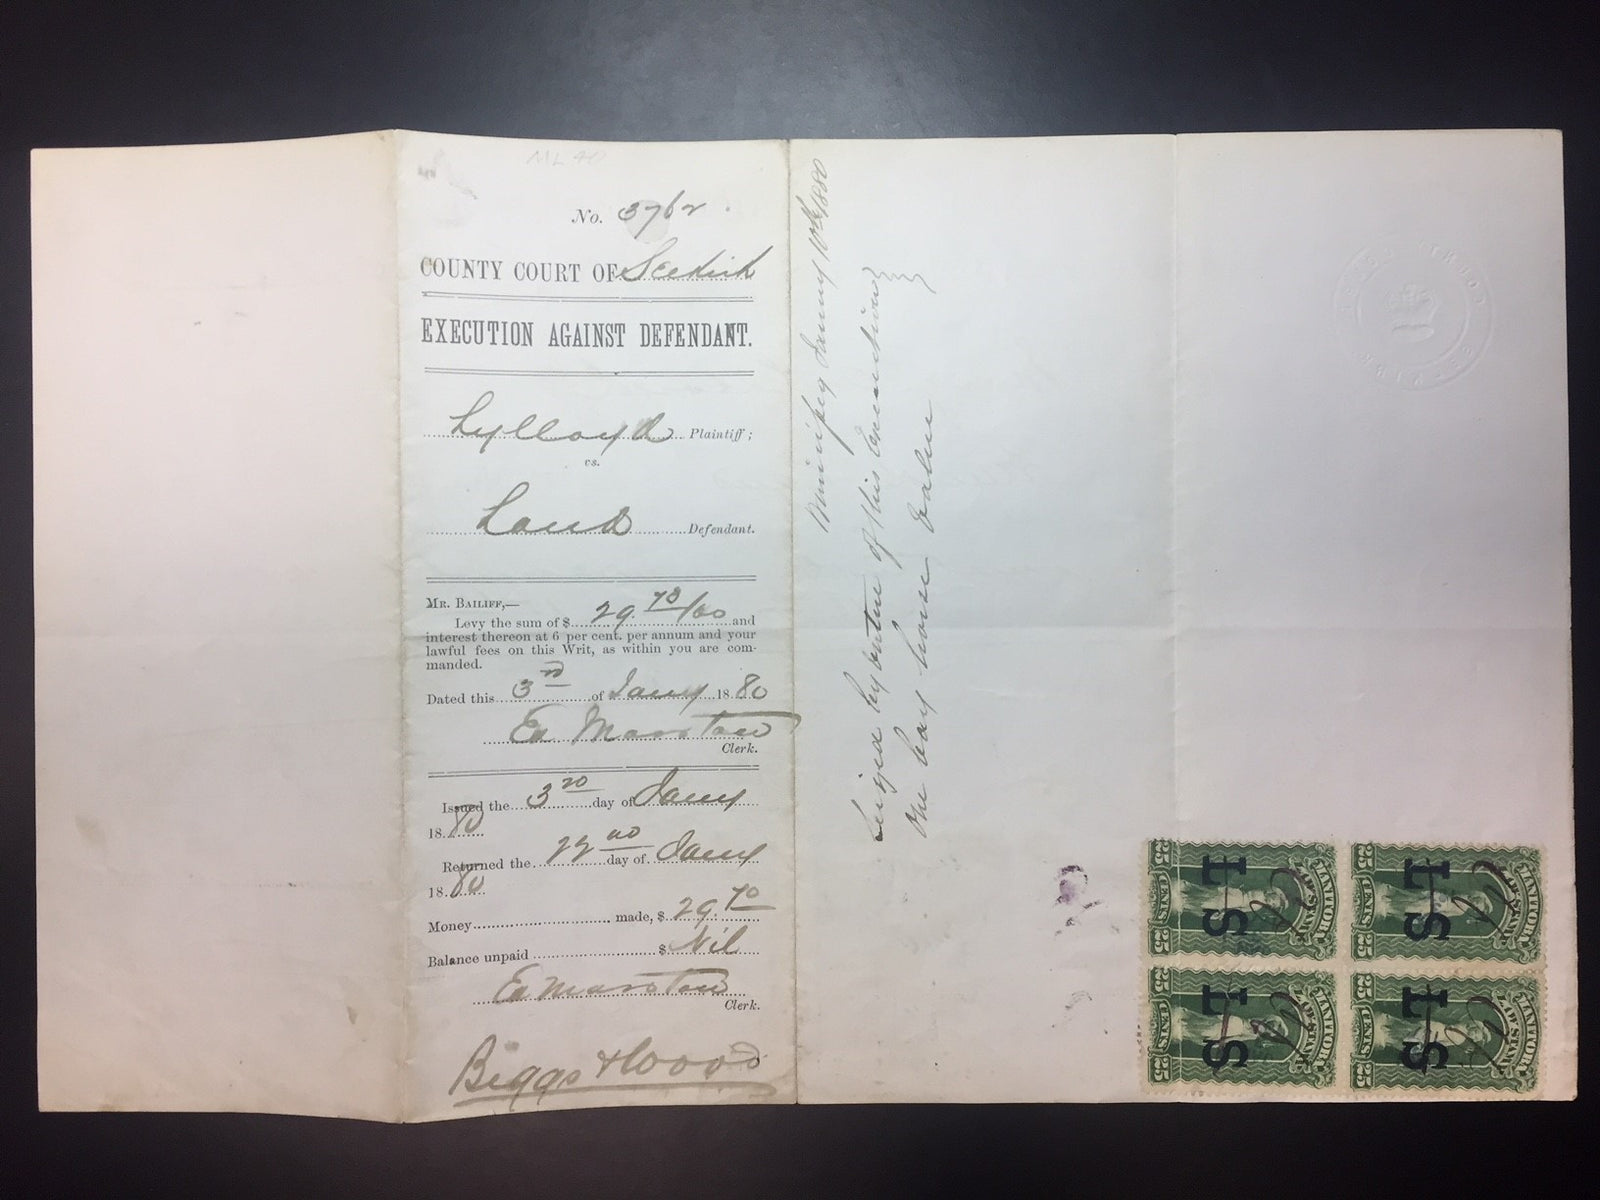 ML 40
No. 3762
COUNTY COURT OF Selkirk
EXECUTION AGAINST DEFENDANT.
Plaintiff;
vs.
Land Defendant.
MR. BAILIFF,—
Levy the sum of $ 29 78/100 and
interest thereon at 6 per cent. per annum and your
lawful fees on this Writ, as within you are com-
manded.
Dated this 3rd of Jany 18 80
Ed Marston
Clerk.
Issued the 3rd day of Jany
18 80
Returned the 22nd day of Jany
18 80
Money made, $ 29.70
Balance unpaid $ Nil
Ed Marston
Clerk.
Biggs & Wood
Winnipeg Jany 10th 1880
Seized by virtue of this execution
One bay horse value
LAW STAMP
25 CENTS 25
L S
LAW STAMP
25 CENTS 25
L S
LAW STAMP
25 CENTS 25
L S
LAW STAMP
25 CENTS 25
L S